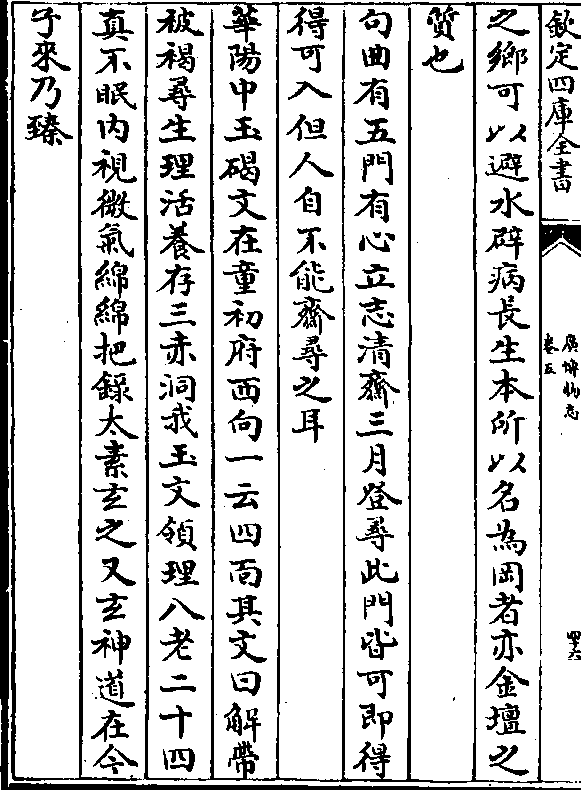 欽定四庫全書
廣博物志
卷五
四十六
之鄉可以避水辟病長生本所以名為岡者亦金壇之
質也
句曲有五門有心立志清齋三月登尋此門皆可即得
得可入但人自不能齋尋之耳
華陽中玉碣文在童初府西向一云四面其文曰解帶
被褐尋生理活養存三赤洞我玉文領理八老二十四
真不眠内視微氣綿綿把錄太素𤣥之又𤣥神道在今
子來乃臻